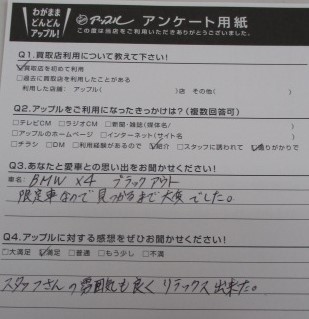 わがまま
どんどん
アップル!
アップル アンケート用紙
この度は当店をご利用いただきありがとうございました。
Q1.買取店利用について教えて下さい!
☑買取店を初めて利用
□過去に買取店を利用したことがある
利用した店舗： アップル( )店 その他( )
Q2.アップルをご利用になったきっかけは?(複数回答可)
□テレビCM □ラジオCM □新聞・雑誌(媒体名/ )
□アップルのホームページ □インターネット(サイト名 )
□チラシ □DM □利用経験があるので ☑紹介 □スタッフに誘われて ☑通りがかりで
Q3.あなたと愛車との思い出をお聞かせください!
車名： BMW X4 ブラックアウト
限定車なので見つかるまで大変でした。
Q4.アップルに対する感想をぜひお聞かせください!
□大満足 ☑満足 □普通 □もう少し □不満
スタッフさんの雰囲気も良くリラックス出来た。